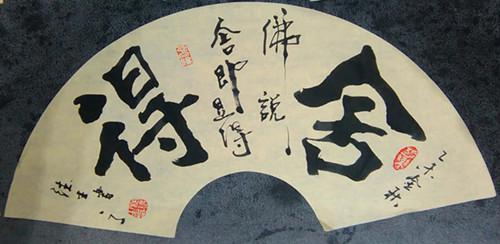 舍
乙未金秋
佛說
舍即是得
得